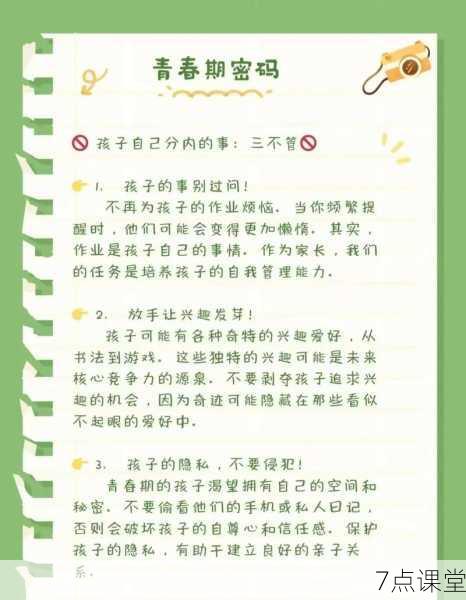 青春期密码
🚫孩子自己分内的事：三不管🚫
👉1. 孩子的事别过问！
不再为孩子的作业烦恼。当你频繁提
醒时，他们可能会变得更加懒惰。其实，
作业是孩子自己的事情。作为家长，我们
的任务是培养孩子的自我管理能力。
👉2. 放手让兴趣发芽！
孩子可能有各种奇特的兴趣爱好，从
书法到游戏。这些独特的兴趣可能是未来
核心竞争力的源泉。不要剥夺孩子追求兴
趣的机会，因为奇迹可能隐藏在那些看似
不起眼的爱好中。
👉3. 孩子的隐私，不要侵犯！
青春期的孩子渴望拥有自己的空间和
秘密。不要偷看他们的手机或私人日记，
否则会破坏孩子的自尊心和信任感。保护
孩子的隐私，有助于建立良好的亲子关
系。
7点课堂